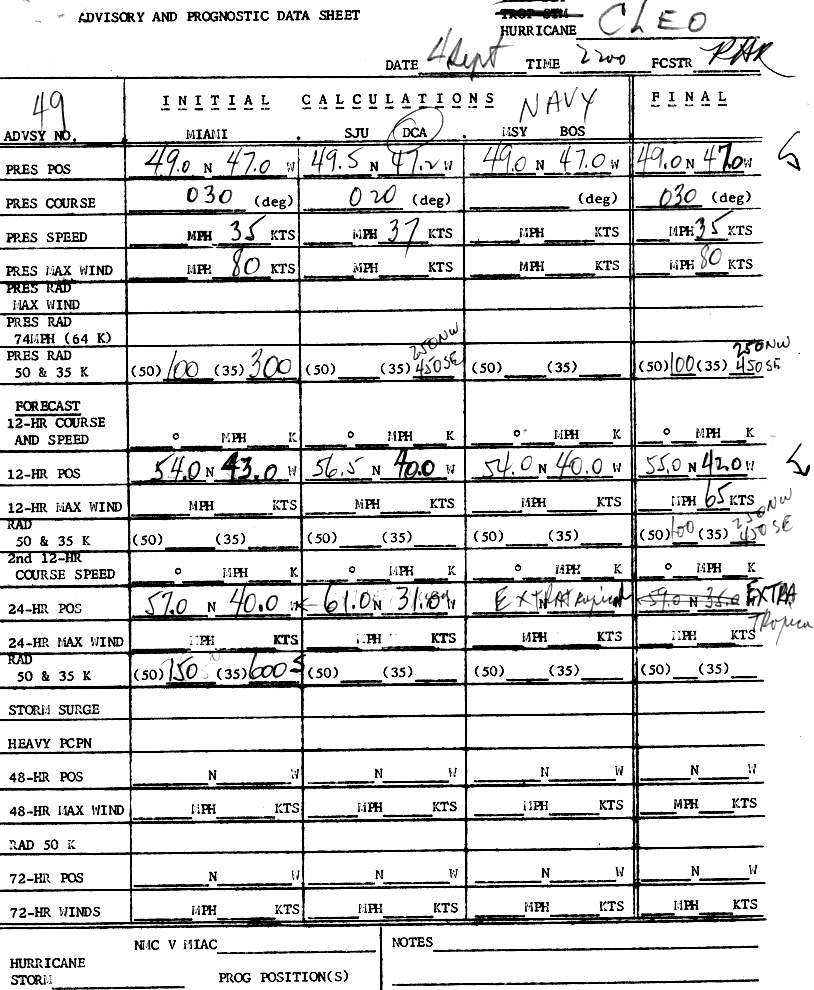 ADVISORY AND PROGNOSTIC DATA SHEET
TROP STM
HURRICANE CLEO
DATE 4 Sept TIME 2200 FCSTR RHR
49 INITIAL CALCULATIONS NAVY FINAL
ADVSY NO. MIAMI SJU DCA MSY BOS
PRES POS 49.0 N 47.0 W 49.5 N 47.2 W 49.0 N 47.0 W 49.0 N 47.0 W
PRES COURSE 030 (deg) 020 (deg) (deg) 030 (deg)
PRES SPEED MPH 35 KTS MPH 37 KTS MPH KTS MPH 35 KTS
PRES MAX WIND MPH 80 KTS MPH KTS MPH KTS MPH 80 KTS
PRES RAD
MAX WIND
PRES RAD
74MPH (64 K)
PRES RAD 250NW 250NW
50 & 35 K (50) 100 (35) 300 (50) (35) 450SE (50) (35) (50) 100 (35) 450SE
FORECAST
12-HR COURSE
AND SPEED ° MPH K ° MPH K ° MPH K ° MPH K
12-HR POS 54.0 N 43.0 W 56.5 N 40.0 W 54.0 N 40.0 W 55.0 N 42.0 W
12-HR MAX WIND MPH KTS MPH KTS MPH KTS MPH 65 KTS
RAD 250NW
50 & 35 K (50) (35) (50) (35) (50) (35) (50) 100 (35) 450SE
2nd 12-HR
COURSE SPEED ° MPH K ° MPH K ° MPH K ° MPH K
24-HR POS 57.0 N 40.0 W 61.0 N 31.0 W EXTRATropical 59.0 N 36.0 EXTRA
Tropica
24-HR MAX WIND MPH KTS MPH KTS MPH KTS MPH KTS
RAD
50 & 35 K (50) 150 (35) 600 S (50) (35) (50) (35) (50) (35)
STORM SURGE
HEAVY PCPN
48-HR POS N W N W N W N W
48-HR MAX WIND MPH KTS MPH KTS MPH KTS MPH KTS
RAD 50 K
72-HR POS N W N W N W N W
72-HR WINDS MPH KTS MPH KTS MPH KTS MPH KTS
NMC V MIAC NOTES
HURRICANE
STORM PROG POSITION(S)